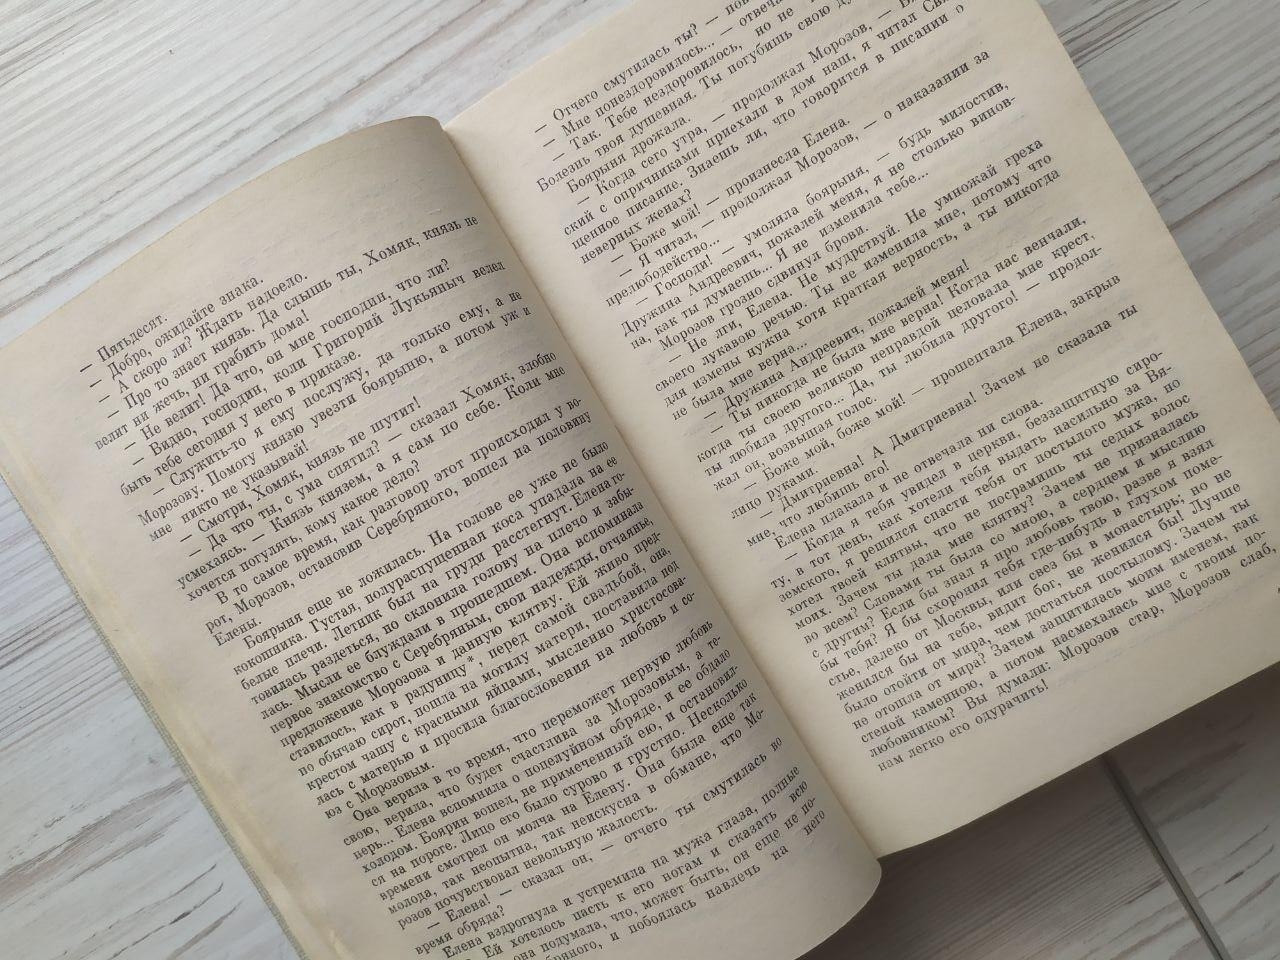 — Пятьдесят.
— Добро, ожидайте знака.
— А скоро ли? Ждать надоело.
— Про то знает князь. Да слышь ты, Хомяк, князь не
велит ни жечь, ни грабить дома!
— Не велит! Да что, он мне господин, что ли?
— Видно, господин, коли Григорий Лукьяныч велел
быть тебе сегодня у него в приказе.
— Служить-то я ему послужу, да только ему, а не
Морозову. Помогу князю увезти боярыню, а потом уж и
мне никто не указывай!
— Смотри, Хомяк, князь не шутит!
— Да что ты, с ума спятил? — сказал Хомяк, злобно
усмехаясь. — Князь князем, а я сам по себе. Коли мне
хочется погулять, кому какое дело?
В то самое время, как разговор этот происходил у во-
рот, Морозов, остановив Серебряного, вошел на половину
Елены.
Боярыня еще не ложилась. На голове ее уже не было
кокошника. Густая, полураспущенная коса упадала на ее
белые плечи. Летник был на груди расстегнут. Елена го-
товилась раздеться, но склонила голову на плечо и забы-
лась. Мысли ее блуждали в прошедшем. Она вспоминала
первое знакомство с Серебряным, свои надежды, отчаянье,
предложение Морозова и данную клятву. Ей живо пред-
ставилось, как в радуницу*, перед самой свадьбой, она,
по обычаю сирот, пошла на могилу матери, поставила под
крестом чашу с красными яйцами, мысленно христосова-
лась с матерью и просила благословения на любовь и со-
юз с Морозовым.
Она верила в то время, что переможет первую любовь
свою, верила, что будет счастлива за Морозовым, а те-
перь... Елена вспомнила о поцелуйном обряде, и ее обдало
холодом. Боярин вошел, не примеченный ею, и остановил-
ся на пороге. Лицо его было сурово и грустно. Несколько
времени смотрел он молча на Елену. Она была еще так
молода, так неопытна, так неискусна в обмане, что Мо-
розов почувствовал невольную жалость.
— Елена! — сказал он, — отчего ты смутилась во
время обряда?
Елена вздрогнула и устремила на мужа глаза, полные
Ей хотелось пасть к его ногам и сказать всю
она подумала, что, может быть, он еще не по-
и побоялась навлечь на него
— Отчего смутилась ты? —
— Мне понездоровилось... —
— Так. Тебе нездоровилось, но не
Болезнь твоя душевная. Ты погубишь свою
Боярыня дрожала.
— Когда сего утра, — продолжал Морозов, —
ский с опричниками приехали в дом наш, я читал Свя-
щенное писание. Знаешь ли, что говорится в писании о
неверных женах?
— Боже мой! — произнесла Елена.
— Я читал, — продолжал Морозов, — о наказании за
прелюбодейство...
— Господи! — умоляла боярыня, — будь милостив,
Дружина Андреевич, пожалей меня, я не столько винов-
на, как ты думаешь... Я не изменила тебе...
Морозов грозно сдвинул брови.
— Не лги, Елена. Не мудрствуй. Не умножай греха
своего лукавою речью. Ты не изменила мне, потому что
для измены нужна хотя краткая верность, а ты никогда
не была мне верна...
— Дружина Андреевич, пожалей меня!
— Ты никогда не была мне верна! Когда нас венчали,
когда ты своею великою неправдой целовала мне крест,
ты любила другого... Да, ты любила другого! — продол-
жал он, возвышая голос.
— Боже мой, боже мой! — прошептала Елена, закрыв
лицо руками.
— Дмитриевна! А Дмитриевна! Зачем не сказала ты
мне, что любишь его!
Елена плакала и не отвечала ни слова.
— Когда я тебя увидел в церкви, беззащитную сиро-
ту, в тот день, как хотели тебя выдать насильно за Вя-
земского, я решился спасти тебя от постылого мужа, но
хотел твоей клятвы, что не посрамишь ты седых волос
моих. Зачем ты дала мне клятву? Зачем не призналась
во всем? Словами ты была со мною, а сердцем и мыслию
с другим? Если бы знал я про любовь твою, разве я взял
бы тебя? Я бы схоронил тебя где-нибудь в глухом поме-
стье, далеко от Москвы, или свез бы в монастырь; но не
женился бы на тебе, видит бог, не женился бы! Лучше
было отойти от мира, чем достаться постылому. Зачем ты
не отошла от мира? Зачем защитилась моим именем, как
стеной каменною, а потом насмехалась мне с твоим по-
любовником? Вы думали: Морозов стар, Морозов слаб,
нам легко его одурачить!